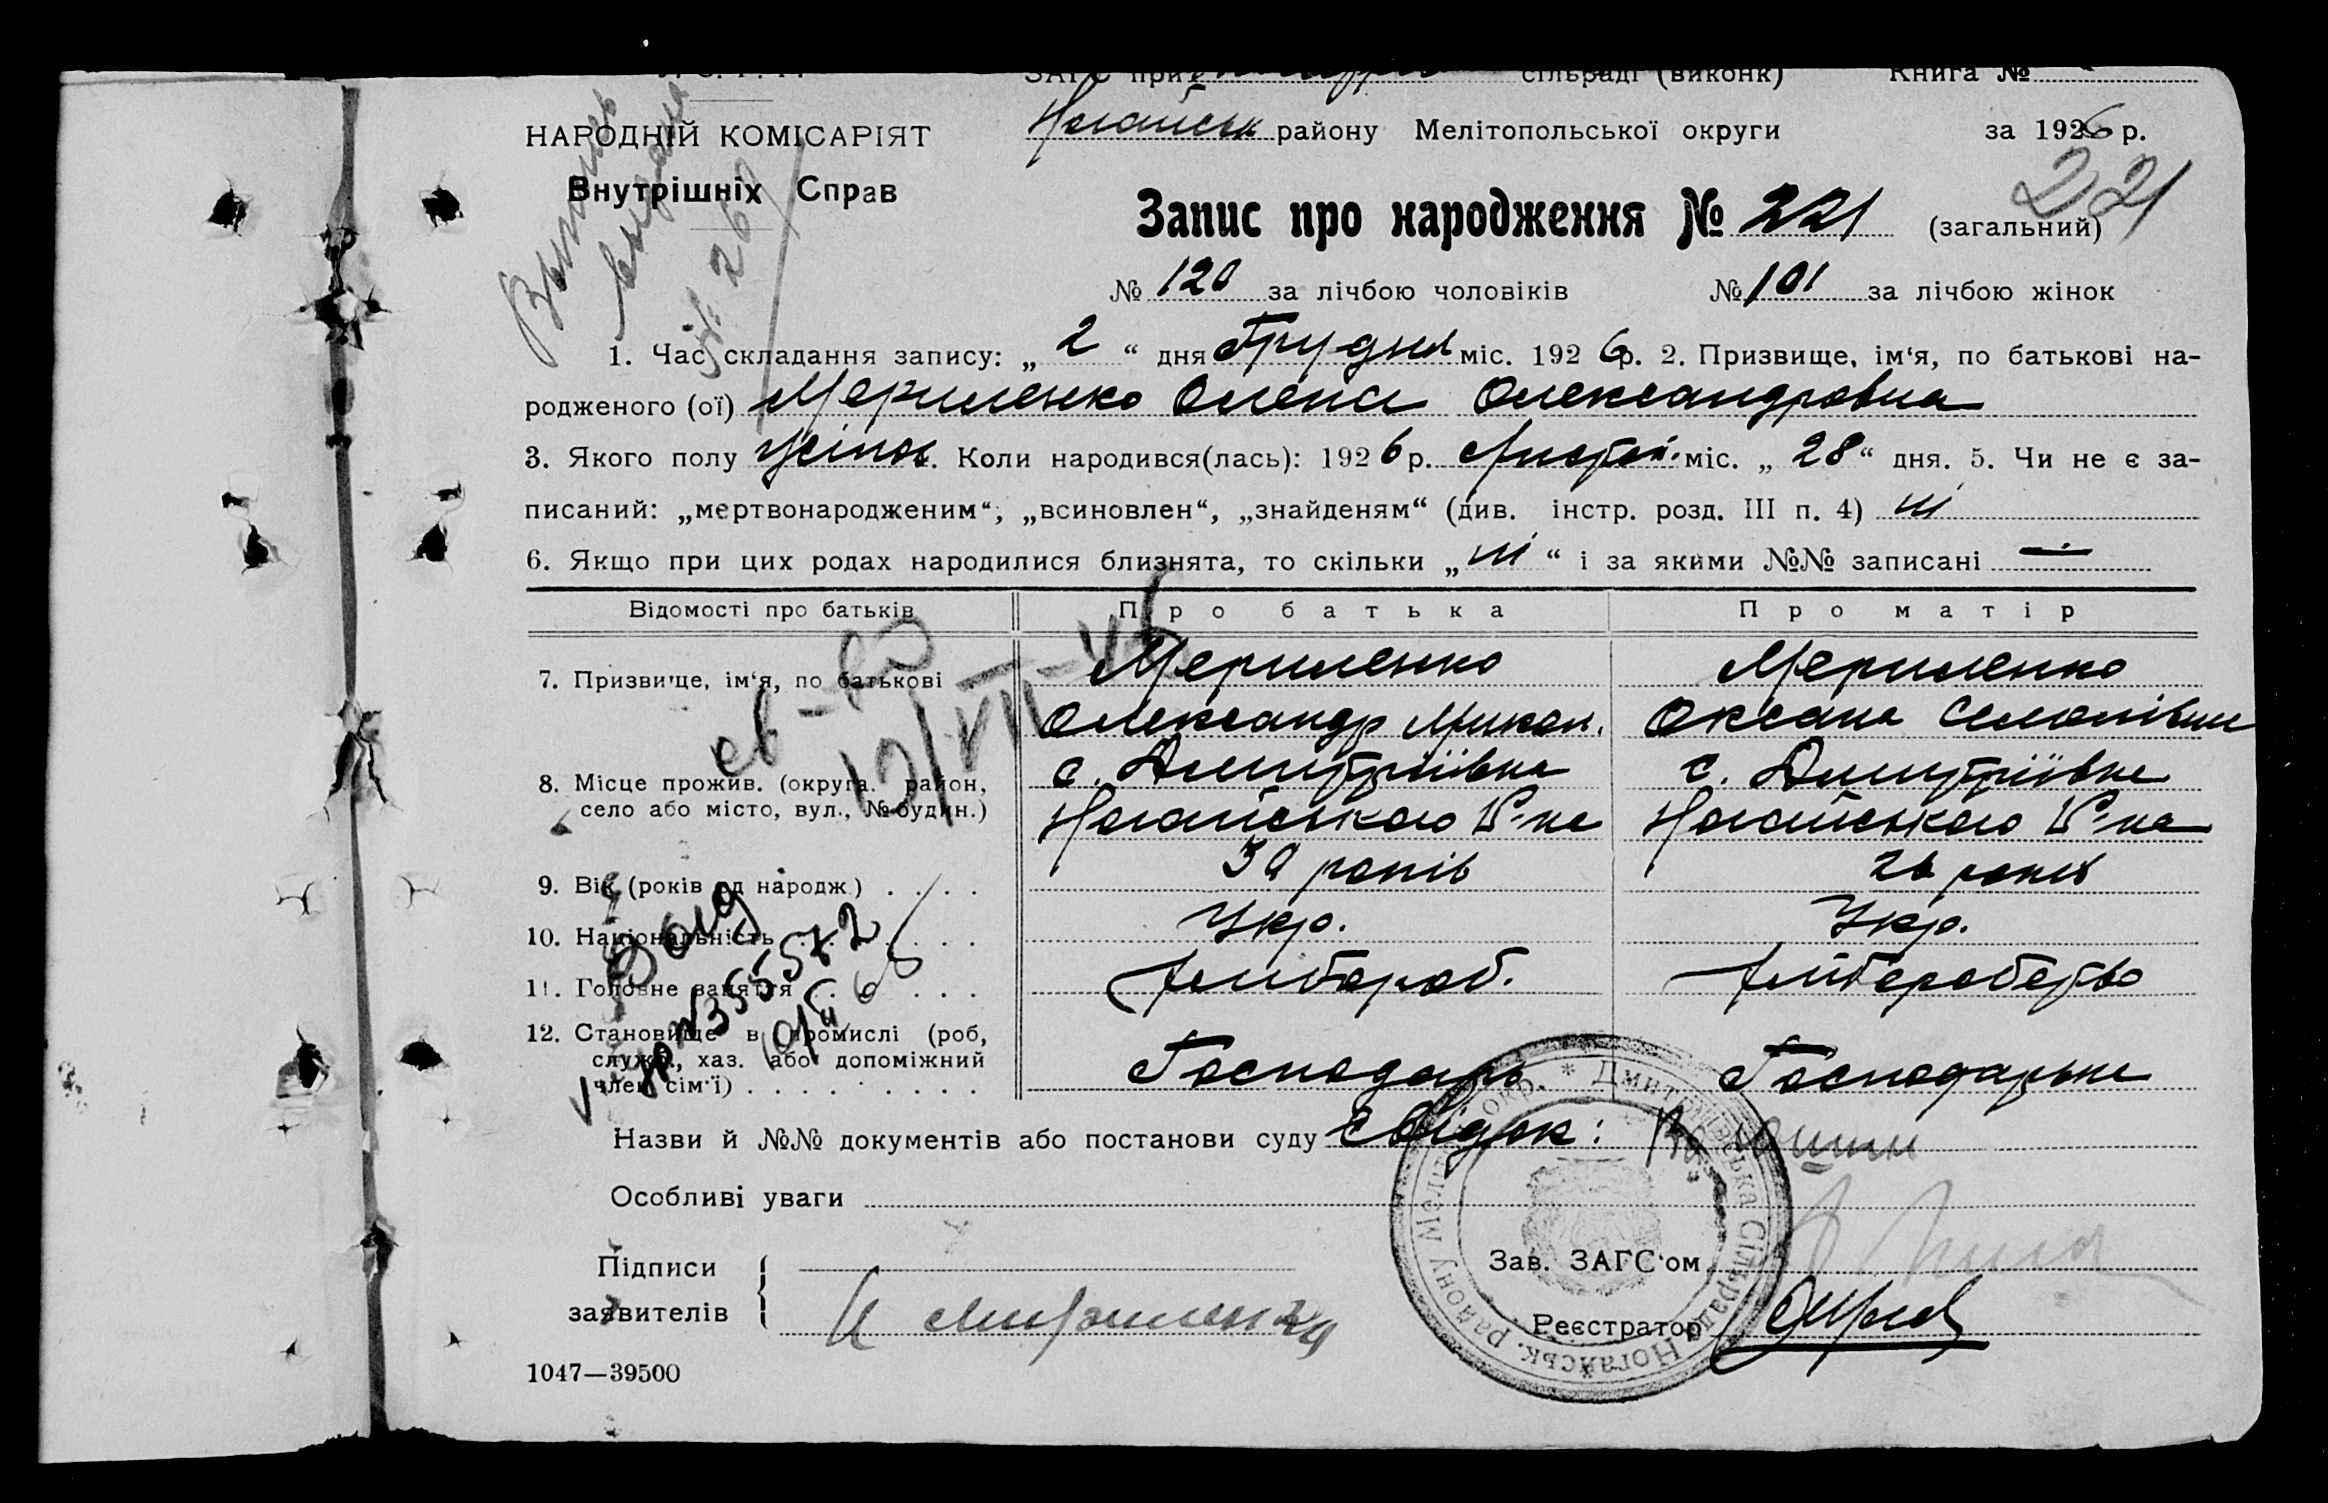 ЗАГС при сільраді (виконк) Книга №
НАРОДНІЙ КОМІСАРІЯТ
Внутрішніх Справ
Ногайськ району Мелітопольської округи за 1926 р.
221
Запис про народження № 221 (загальний)
№ 120 за лічбою чоловіків № 101 за лічбою жінок
1. Час складання запису: „ 2 “ дня Грудня міс. 1926 р. 2. Призвище, ім‘я, по батькові на-
родженого (ої) Мериленко Олена Олександровна
3. Якого полу жіноч. Коли народився(лась): 1926 р. Листоп. міс. „ 28 “ дня. 5. Чи не є за-
писаний: „мертвонародженим“, „всиновлен“, „знайденям“ (див. інстр. розд. III п. 4) ні
6. Якщо при цих родах народилися близнята, то скільки „ ні “ і за якими №№ записані —
Відомості про батьків Про батька Про матір
7. Призвище, ім‘я, по батькові Мериленко Мериленко
Олександр Микол. Оксана Семенівна
8. Місце прожив. (округа. район, с. Дмитріївка с. Дмитріївка
село або місто, вул., № будин.) Ногайського Р-на Ногайського Р-на
9. Вік (років од народж.) 30 років 26 років
10. Національність Укр. Укр.
11. Головне заняття Хлібороб. Хліборобство
12. Становище в промислі (роб, Господарь Господарька
служб, хаз. або допоміжний
член сім‘ї)
Назви й №№ документів або постанови суду Свідок:
Особливі уваги
Підписи
заявителів
Зав. ЗАГС‘ом
Реєстратор
1047—39500
Выпись
выдана
№ 269
355572
Дмитріївська Сільрада Ногайськ. району Меліт. окр.